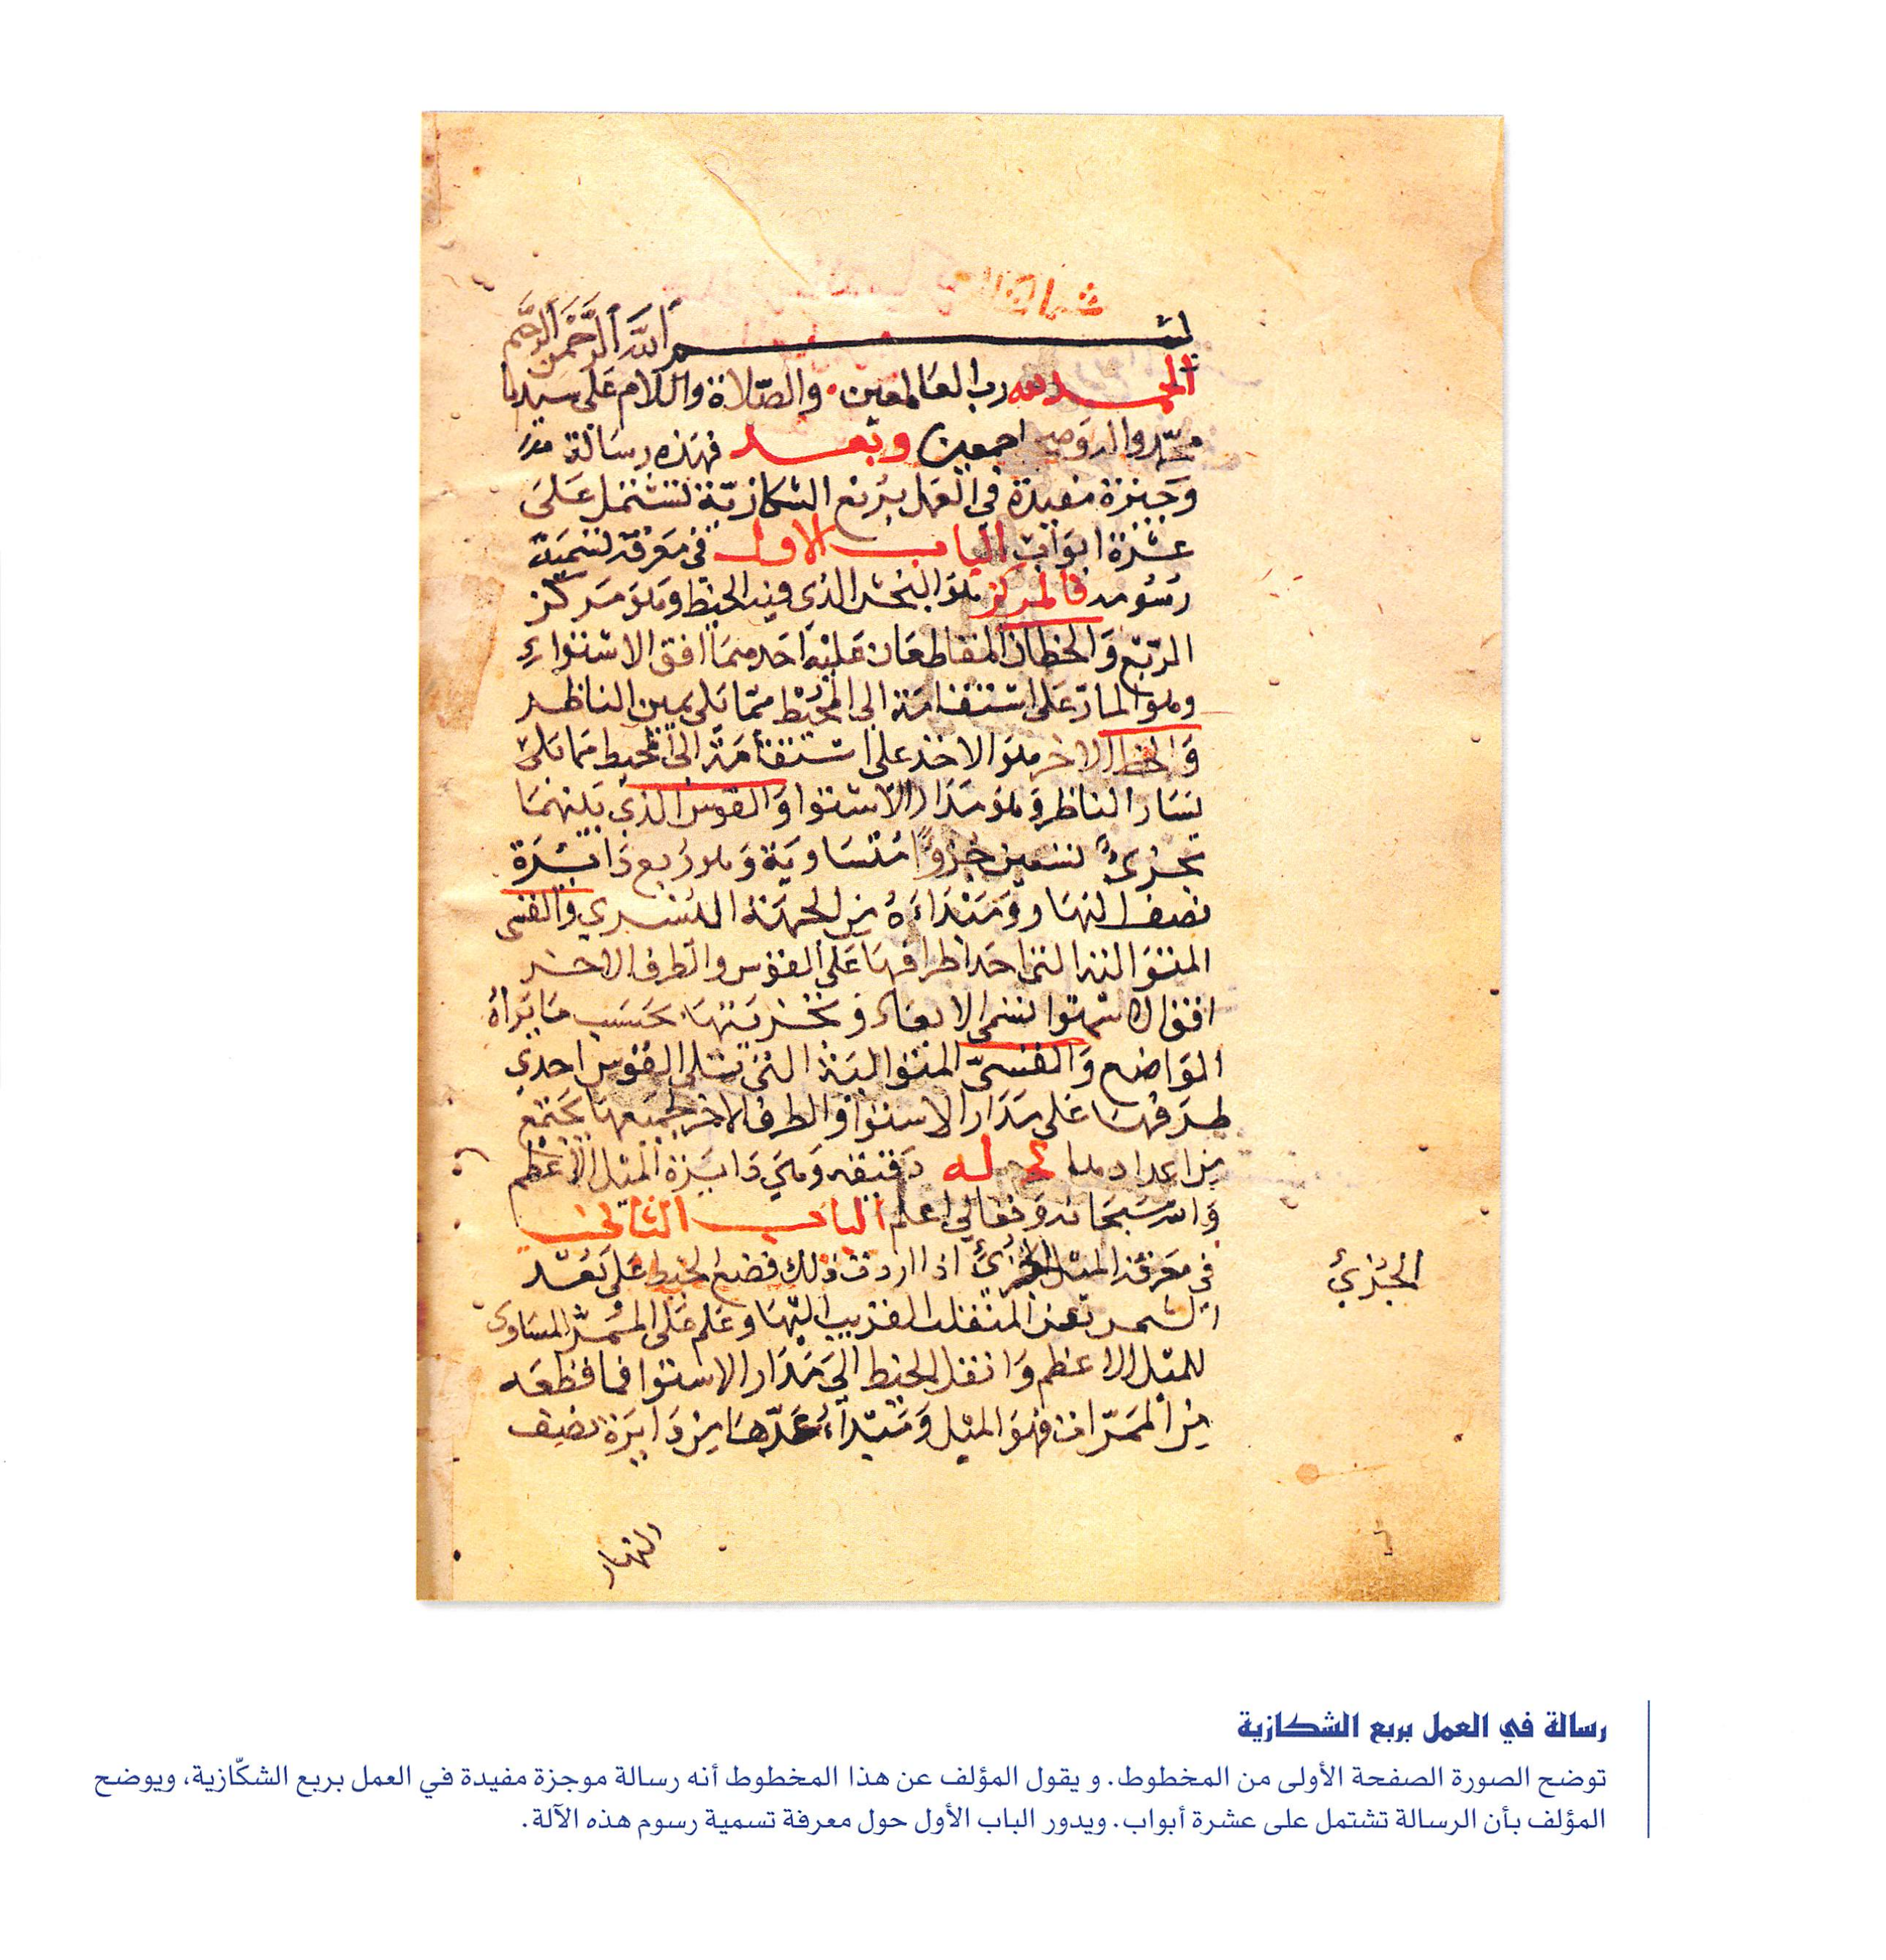 بسم الله الرحمن الرحيم
الحمد لله رب العالمين والصلاة والسلام على سيدنا
محمد واله وصحبه اجمعين وبعد فهذه رسالة
وجيزة مفيدة في العمل بربع الشكازية تشتمل على
عشرة ابواب الباب الاول في معرفة تسمية
رسومه فالمركز هو البخش الذي فيه الخيط وهو مركز
الربع والخطان المتقاطعان عليه احدهما افق الاستواء
وهو المار على استقامة الى المحيط مما يلي يمين الناظر
والخط الاخر هو الاخذ على استقامة الى المحيط مما يلي
يسار الناظر وهو مدار الاستوا والقوس الذي بينهما
تجزئ تسعين جزوا متساوية وهو ربع دائرة
نصف النهار ومبتداءه من الجهة اليسري والقسي
المتوالية التي احد اطرافها على القوس والطرف الاخر
افق الاستوا تسمى الابعاد وتجزيتها بحسب ما يراه
المواضع والقسي المتوالية التي تلي القوس احدي
طرفها على مدار الاستوا والطرف الاخر لجميعها يجتمع
من اعدادها كج له دقيقه وهي دايرة الميل الاعظم
والله سبحانه وتعالي اعلم الباب الثاني
في معرفة الميل الجزئ اذا اردت ذلك فضع الخيط على بعد
الشمس عن المنقلب القريب اليها وعلم على الممر المساوى
للميل الاعظم وانقل الخيط الي مدار الاستوا فما قطعه
من الممرات فهو الميل ومبتداء عدها من دايرة نصف
الجزئي
النهار
رسالة في العمل بربع الشكازية
توضح الصورة الصفحة الأولى من المخطوط. و يقول المؤلف عن هذا المخطوط أنه رسالة موجزة مفيدة في العمل بربع الشكّازية، ويوضح
المؤلف بأن الرسالة تشتمل على عشرة أبواب. ويدور الباب الأول حول معرفة تسمية رسوم هذه الآلة.